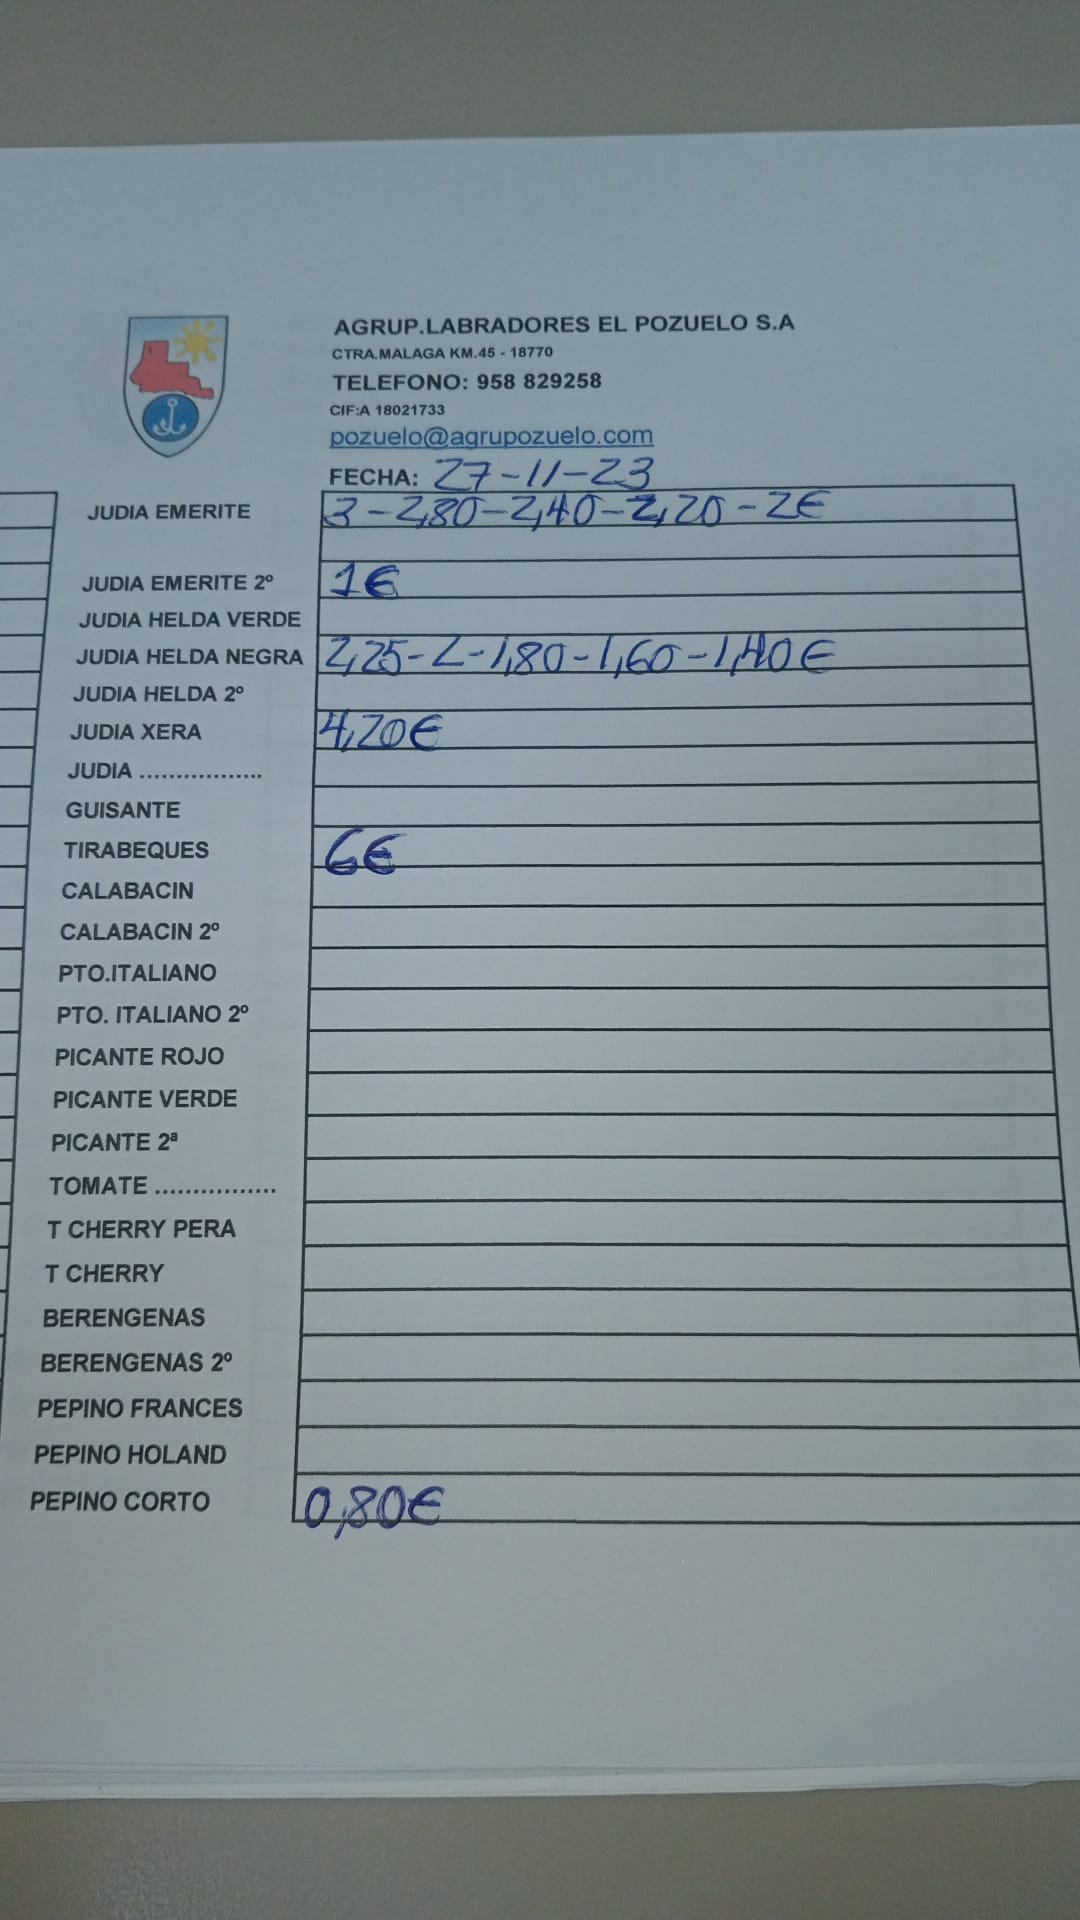 AGRUP.LABRADORES EL POZUELO S.A
CTRA.MALAGA KM.45 - 18770
TELEFONO: 958 829258
CIF:A 18021733
pozuelo@agrupozuelo.com
FECHA: 27-11-23
JUDIA EMERITE 3-2,80-2,40-2,20-2€
JUDIA EMERITE 2º 1€
JUDIA HELDA VERDE
JUDIA HELDA NEGRA 2,25-2-1,80-1,60-1,40€
JUDIA HELDA 2º
JUDIA XERA 4,20€
JUDIA .................
GUISANTE
TIRABEQUES 6€
CALABACIN
CALABACIN 2º
PTO.ITALIANO
PTO. ITALIANO 2º
PICANTE ROJO
PICANTE VERDE
PICANTE 2ª
TOMATE ................
T CHERRY PERA
T CHERRY
BERENGENAS
BERENGENAS 2º
PEPINO FRANCES
PEPINO HOLAND
PEPINO CORTO 0,80€